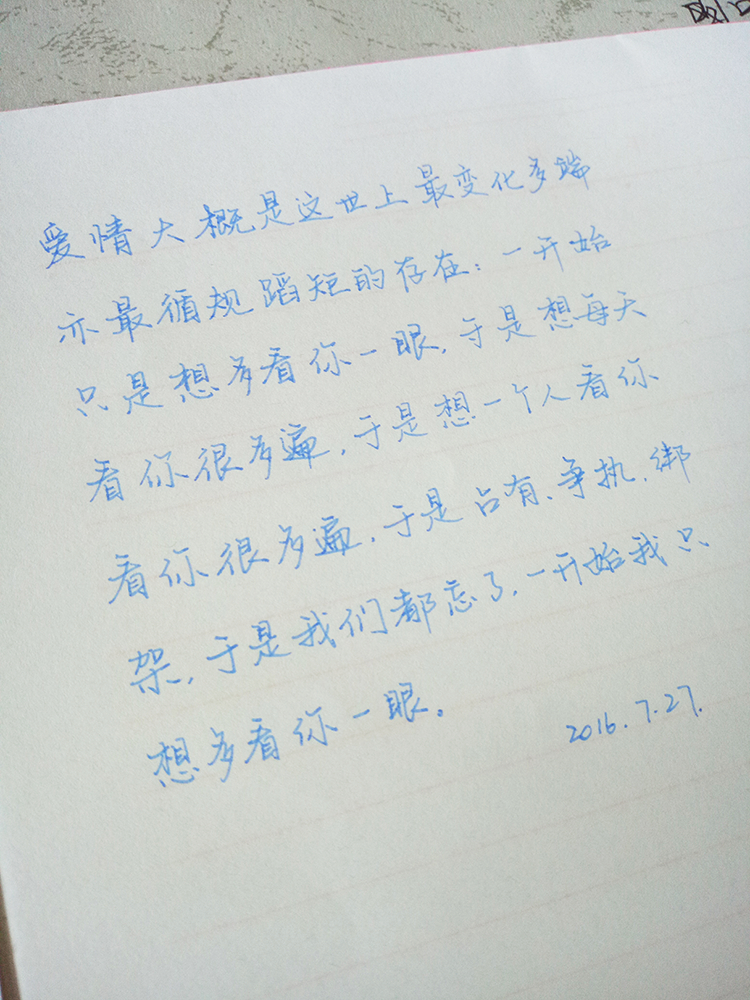 爱情大概是这世上最变化多端
亦最循规蹈矩的存在：一开始
只是想多看你一眼，于是想每天
看你很多遍，于是想一个人看你
看你很多遍，于是占有、争执、绑
架，于是我们都忘了，一开始我只
想多看你一眼。
2016.7.27.